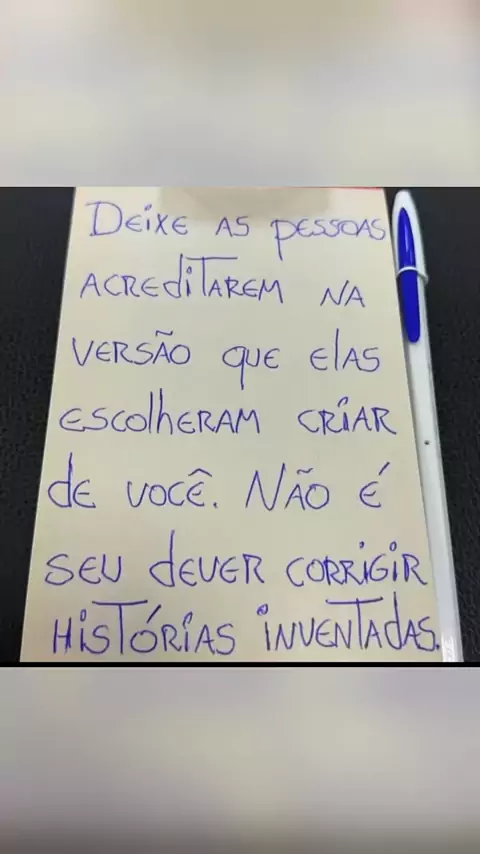 DEIXE AS PESSOAS
ACREDITAREM NA
VERSÃO QUE ELAS
ESCOLHERAM CRIAR
DE VOCÊ. NÃO É
SEU DEVER CORRIGIR
HISTÓRIAS INVENTADAS.